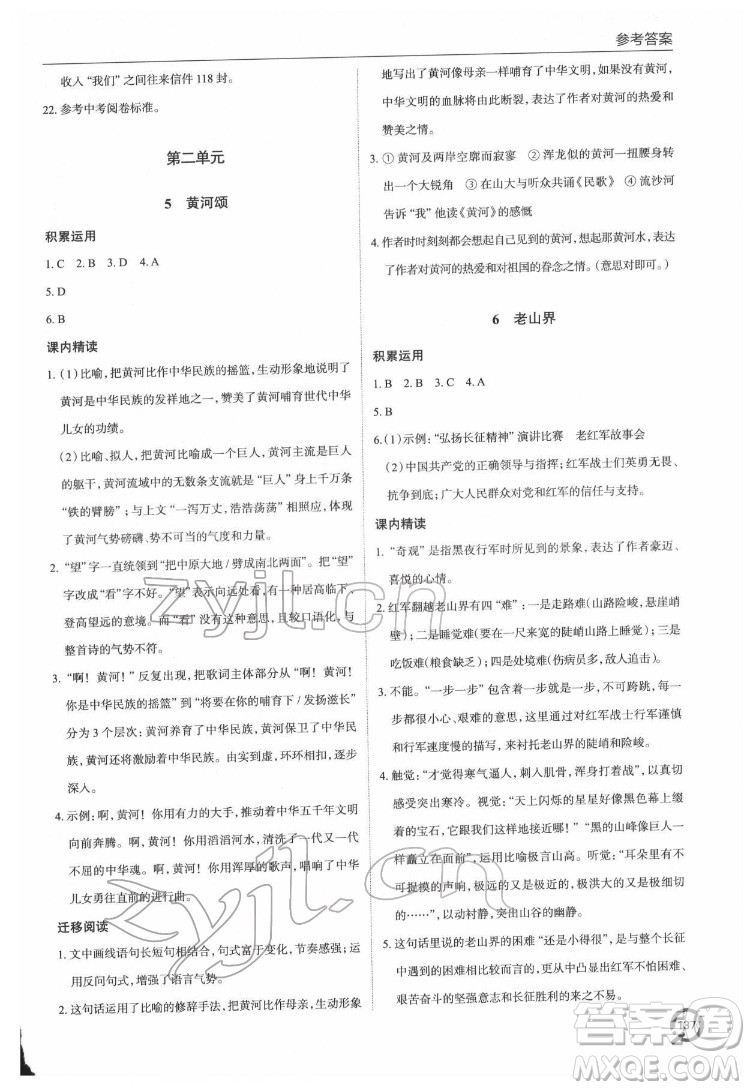 参考答案
收入“我们”之间往来信件 118 封。
22. 参考中考阅卷标准。
第二单元
5 黄河颂
积累运用
1. C 2. B 3. D 4. A
5. D
6. B
课内精读
1. (1) 比喻，把黄河比作中华民族的摇篮，生动形象地说明了
黄河是中华民族的发祥地之一，赞美了黄河哺育世代中华
儿女的功绩。
(2) 比喻、拟人，把黄河比喻成一个巨人，黄河主流是巨人
的躯干，黄河流域中的无数条支流就是“巨人”身上千万条
“铁的臂膀”；也描写了“一泻万丈，浩浩荡荡”，体现了
了黄河气势磅礴、势不可当的气度和力量。
2. “望”字一直统领到“把中原大地 / 劈成南北两面”。把“望”
字改成“看”字不好。“望”表示向远处看，有一种居高临下、
登高望远的意境。而“看”没有这层意思，且比较口语化，与
整首诗的气势不符。
3. “啊！黄河！”反复出现，把歌词主体部分从“啊！黄河！
你是中华民族的摇篮”到“将要在你的哺育下 / 发扬滋长”
分为 3 个层次：黄河养育了中华民族，黄河保卫了中华民
族，黄河还将激励着中华民族。由实到虚，环环相扣，逐步
深入。
4. 示例：啊，黄河！你用有力的大手，推动着中华五千年文明
向前奔腾。啊，黄河！你用滔滔河水，清洗了一代又一代
不屈的中华魂。啊，黄河！你用浑厚的歌声，唱响了中华
儿女勇往直前的进行曲。
迁移阅读
1. 文中画线语句长短句相结合，句式富于变化，节奏感强，运
用反问句式，增强了语言气势。
2. 这句话运用了比喻的修辞手法，把黄河比作母亲，生动形象
地写出了黄河像母亲一样哺育了中华文明，如果没有黄河，
中华文明的血脉将由此断裂，表达了作者对黄河的热爱和
赞美之情。
3. ① 黄河及两岸空廓而寂寥 ② 浑龙似的黄河一扭腰身转
出一个大锐角 ③ 在山大与听众共诵《民歌》 ④ 流沙河
告诉“我”他读《黄河》的感慨
4. 作者时时刻刻都会想起自己见到的黄河，想起那黄河水，表
达了作者对黄河的热爱和对祖国的眷念之情。(意思对即可。)
6 老山界
积累运用
1. B 2. B 3. C 4. A
5. B
6. (1) 示例：“弘扬长征精神”演讲比赛 老红军故事会
(2) 中国共产党的正确领导与指挥；红军战士们英勇无畏、
抗争到底；广大人民群众对红军的信任与支持。
课内精读
1. “奇观”是指黑夜行军时所见到的景象，表达了作者豪迈、
喜悦的心情。
2. 红军翻越老山界有四“难”：一是走路难(山路险峻，悬崖峭
壁)；二是睡觉难(在一尺来宽的陡峭山路上睡觉)；三是
吃饭难(粮食缺乏)；四是处境难(伤病员多，敌人追击)。
3. 不能。“一步一步”包括每一步，有一步也不可跨跳，每一
步都很小心、艰难的意思，通过对红军战士行军谨慎
和行军速度慢的描写，来衬托老山界的陡峭和险峻。
4. 触觉：“才觉得寒气逼人，刺入肌骨，浑身打着战”，以触觉
写出寒冷。视觉：“天上闪烁的星星好像黑色幕上缀
着的宝石，它跟我们这样地接近哪！”“黑的山峰像巨人一
样矗立在面前”，运用比喻极言山高。听觉：“耳朵里有
可捉摸的声响，极远的又是极近的，极洪大的又是极细切的
……”，以动衬静，突出山谷的幽静。
5. 这句话里的老山界的困难“还小得很”，是为了与整个长征
中的困难相对比，突出长征遇到的困难之大，表现了红军
艰苦奋斗的坚强意志和长征胜利的来之不易。
137
zyjl.cn
zyjl.cn
答案圈
MXQE.COM